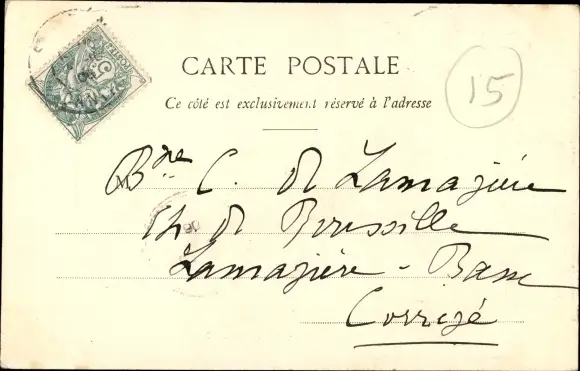 CARTE POSTALE
15
Ce côté est exclusivement réservé à l'adresse
Bne C. de Lamazière
Ch de Roussille
Lamazière - Basse
Corrèze